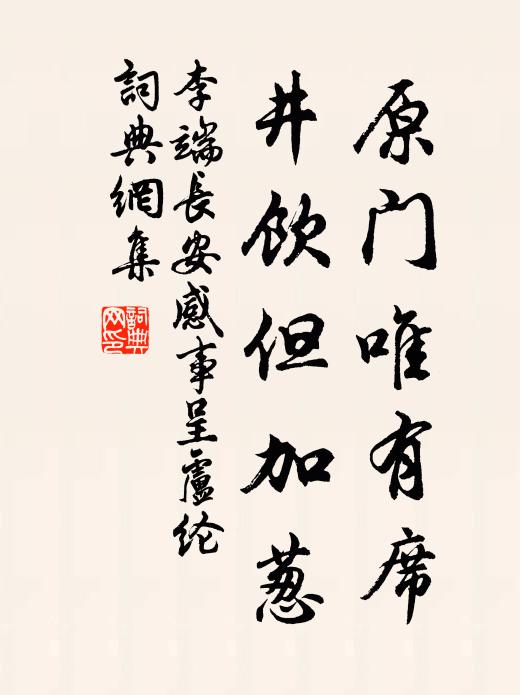 原门唯有席
井饮但加葱
李端長安感事呈盧纶
詞典網集
詞典网印